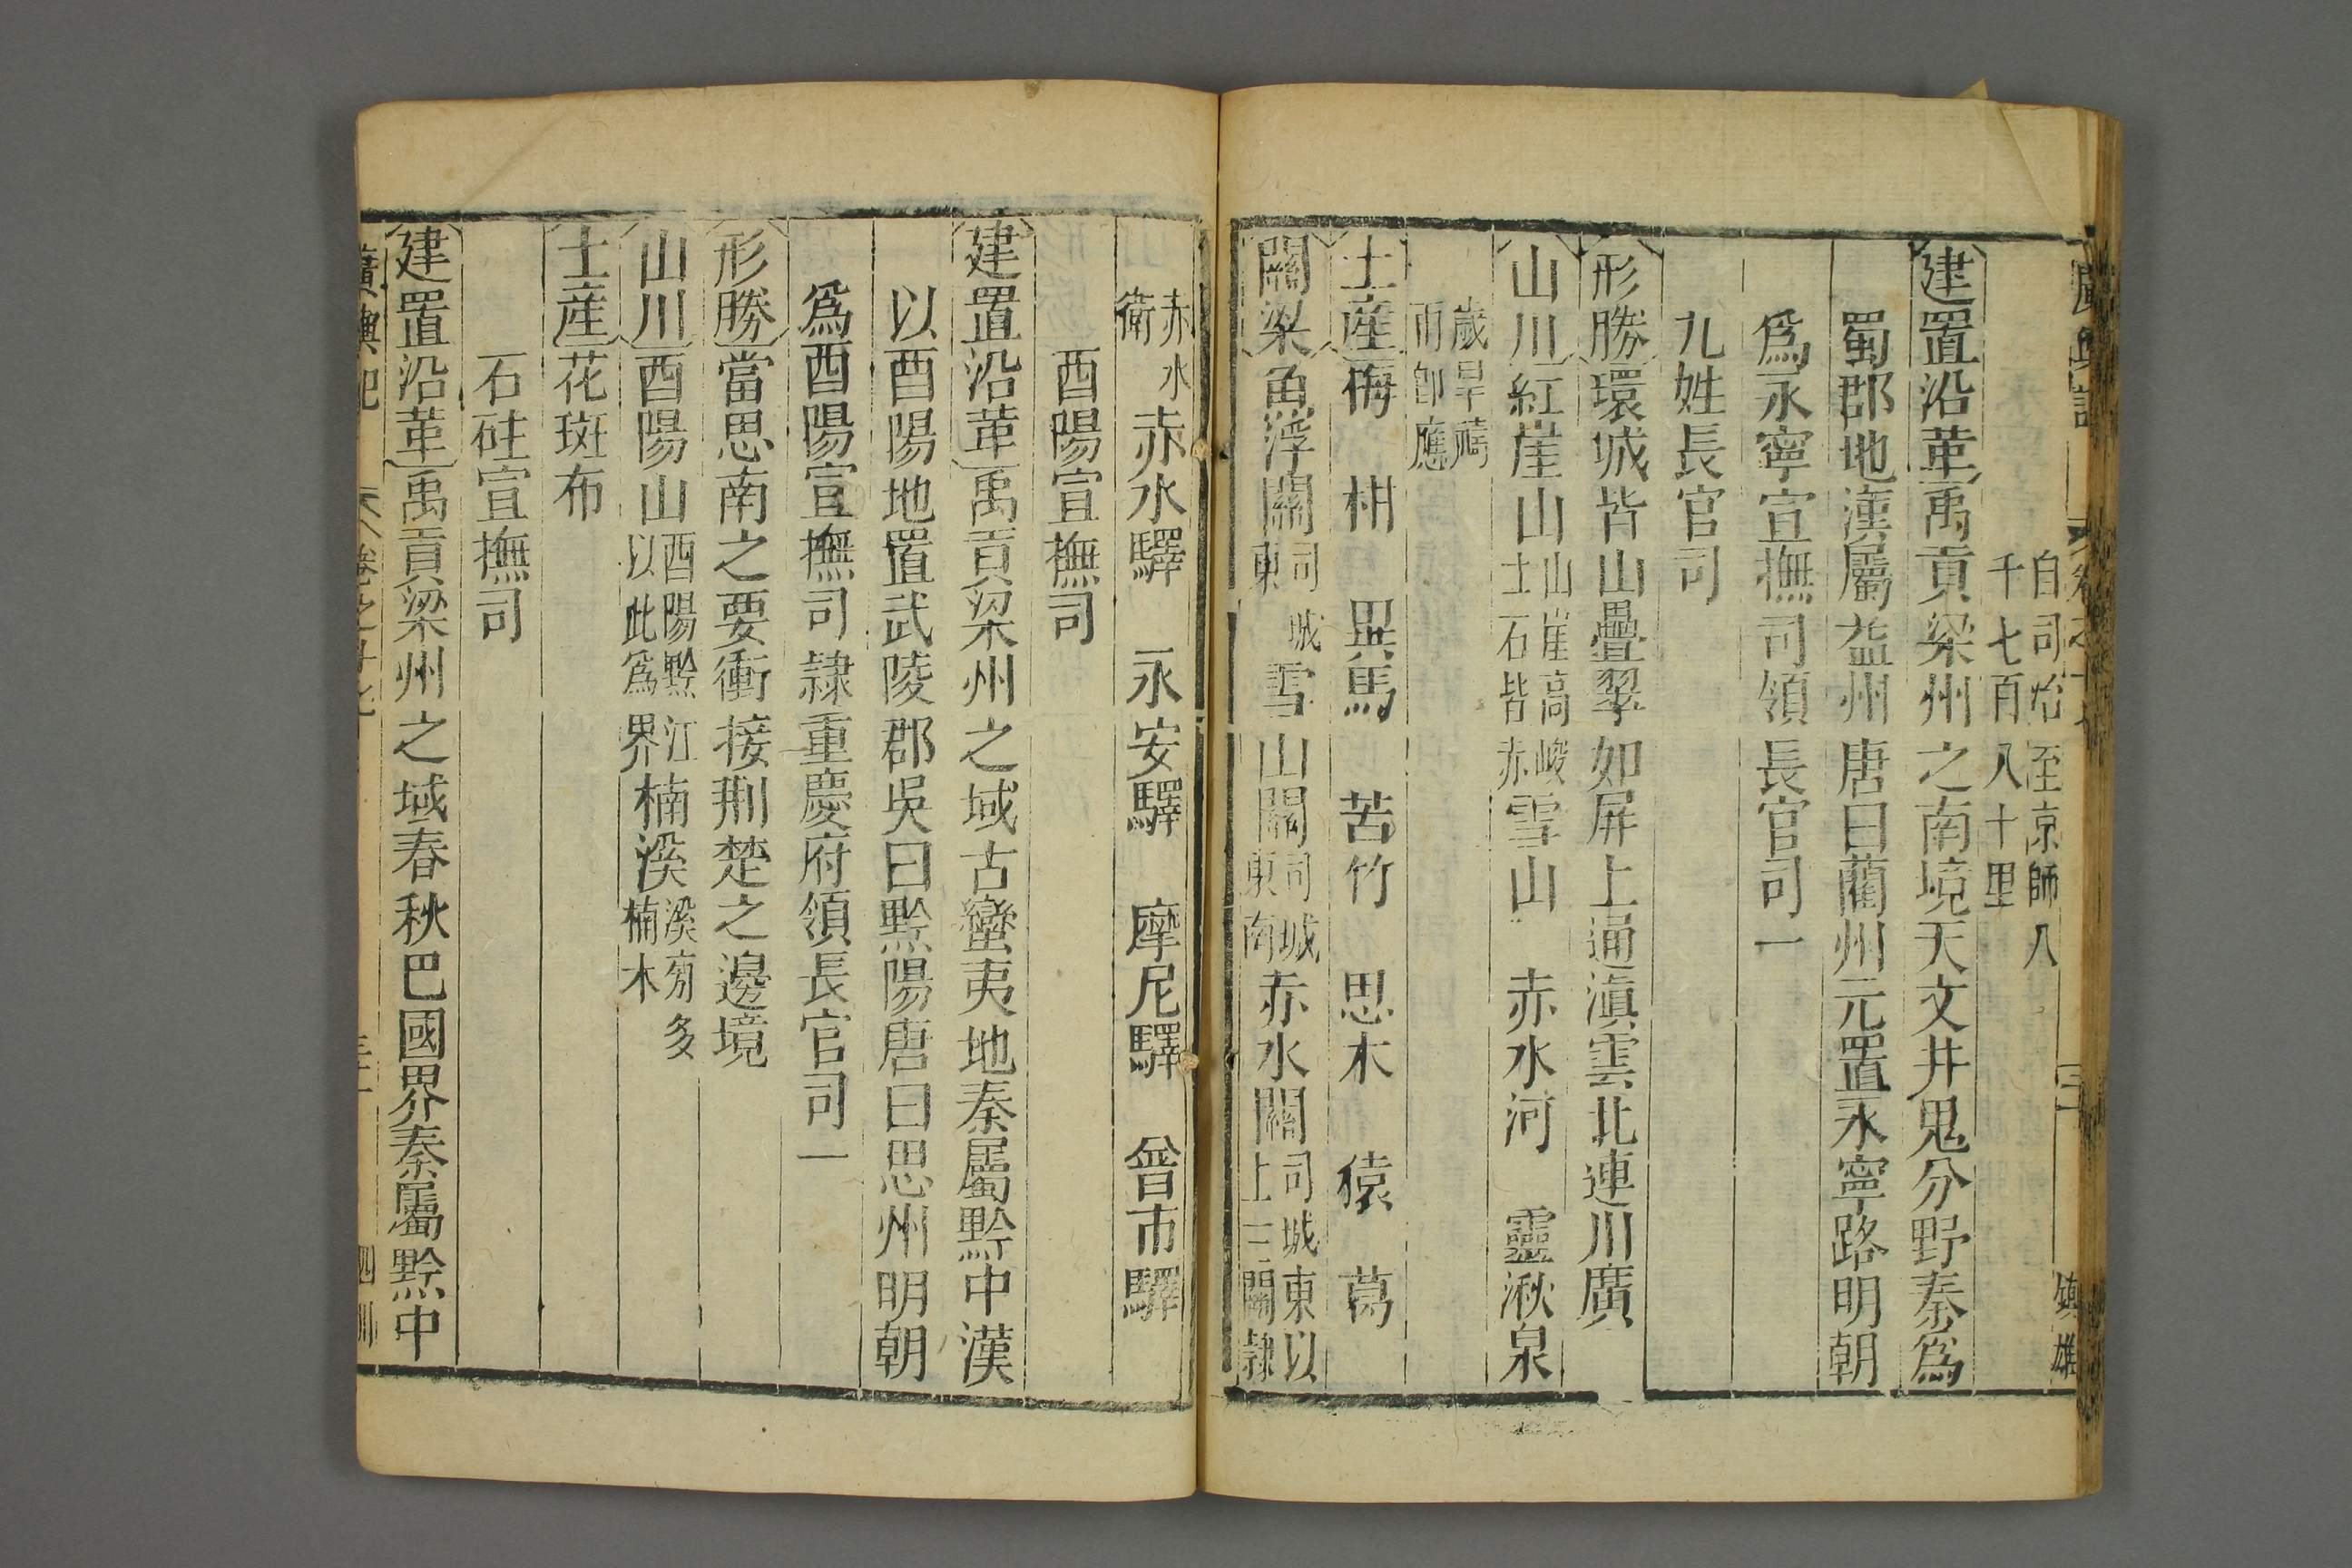 自司治至京師八
千七百八十里
建置沿革禹貢梁州之南境天文井鬼分野秦爲
蜀郡地漢屬益州唐曰藺州元置永寧路明朝
爲永寧宣撫司領長官司一
九姓長官司
形勝環城皆山疊翠如屏上通滇雲北連川廣
山川紅崖山山崖高峻土石皆赤雪山 赤水河 靈湫泉
歲旱禱
雨卽應
土産梅 柑 異馬 苦竹 思木 猿 葛
關梁魚浮關司城東雪山關司城東南赤水關司城東以上三關隷
赤水
衛赤水驛 永安驛 摩尼驛 曾市驛
酉陽宣撫司
建置沿革禹貢梁州之域古蠻夷地秦屬黔中漢
以酉陽地置武陵郡吳曰黔陽唐曰思州明朝
爲酉陽宣撫司隷重慶府領長官司一
形勝當思南之要衝接荆楚之邊境
山川酉陽山酉陽黔江以此爲界楠溪溪旁多楠木
土産花斑布
石砫宣撫司
建置沿革禹貢梁州之域春秋巴國界秦屬黔中
廣輿記 卷之十七 三十一 四川